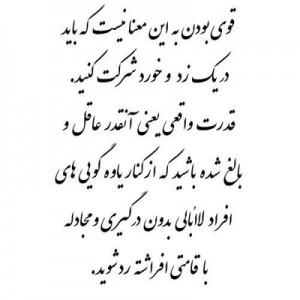 قوی بودن به این معنا نیست که باید
در یک زد و خورد شرکت کنید.
قدرت واقعی یعنی آنقدر عاقل و
بالغ شده باشید که از کنار یاوه گویی های
افراد لاابالی بدون درگیری و مجادله
با قامتی افراشته رد شوید.